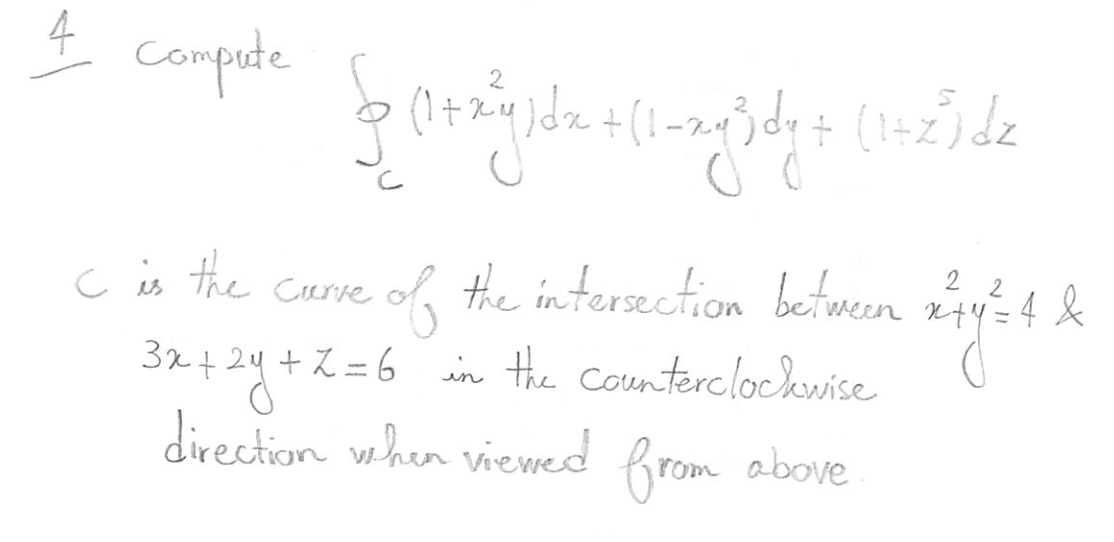 4 Compute ∮_C (1+x²y)dx + (1-xy²)dy + (1+z⁵)dz
C is the curve of the intersection between x²+y²=4 &
3x+2y+z=6 in the counterclockwise
direction when viewed from above.